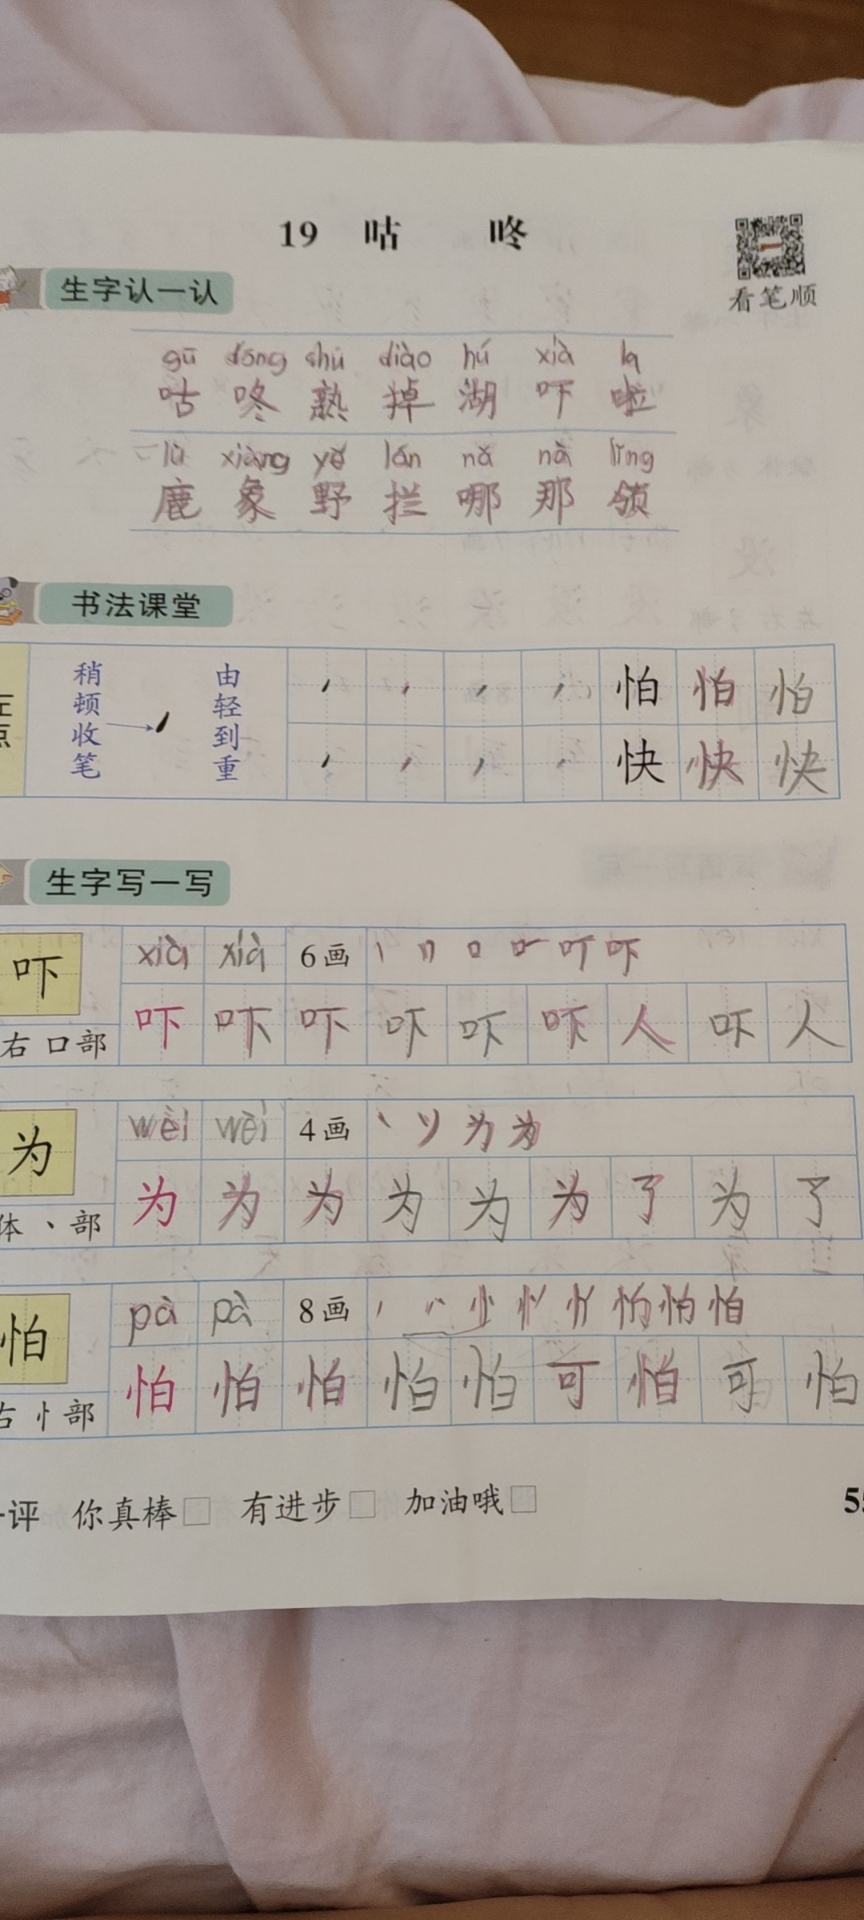 19 咕 咚
看笔顺
生字认一认
gū dōng shú diào hú xià la
咕 咚 熟 掉 湖 吓 啦
lù xiàng yě lán nǎ nà lǐng
鹿 象 野 拦 哪 那 领
书法课堂
稍顿收笔 由轻到重
怕 怕 怕
快 快 快
生字写一写
吓 xià xià 6画 吓
右 口部 吓 吓 吓 吓 吓 吓 人 吓 人
为 wèi wèi 4画 为 为
体 丶部 为 为 为 为 为 为 了 为 了
怕 pà pà 8画 怕
右 忄部 怕 怕 怕 怕 怕 可 怕 可 怕
评 你真棒□ 有进步□ 加油哦□